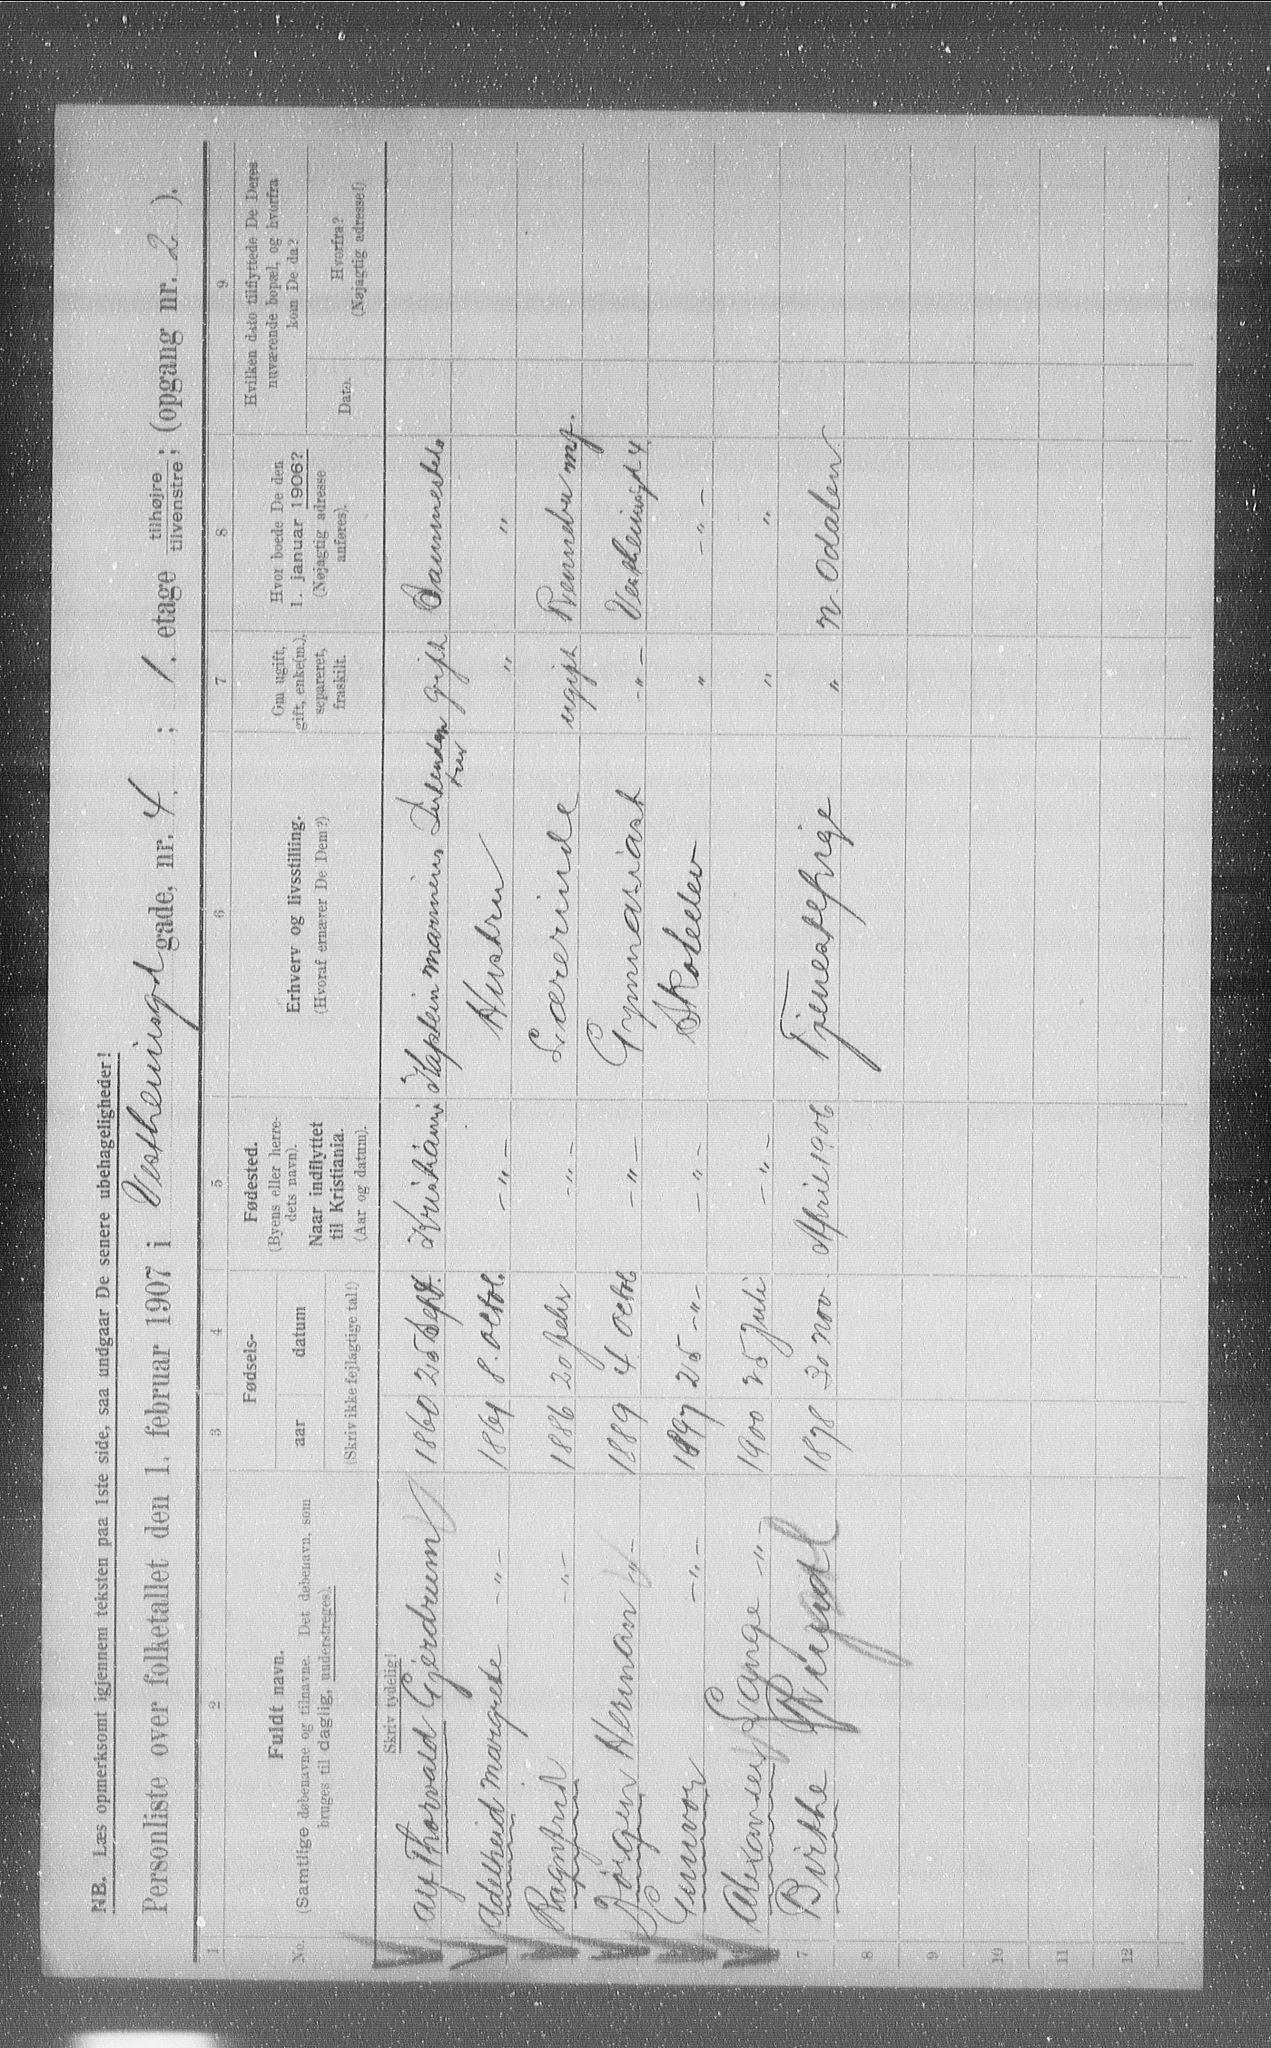 NB. Læs opmerksomt igjennem teksten paa 1ste side, saa undgaar De senere ubehageligheder!
Personliste over folketallet den 1. februar 1907 i Vestheimsgd gade, nr. 4 ; 1. etage tilhøjre tilvenstre; (opgang nr. 2 ).
1 2 3 4 5 6 7 8 9
No.
Fuldt navn.
(Samtlige døbenavne og tilnavne. Det døbenavn, som
bruges til daglig, understreges).
Fødsels-
aar datum
(Skriv ikke fejlagtige tal!)
Fødested.
(Byens eller herre-
dets navn).
Naar indflyttet
til Kristiania.
(Aar og datum).
Erhverv og livsstilling.
(Hvoraf ernærer De Dem?)
Om ugift,
gift, enke(m.),
separeret,
fraskilt.
Hvor boede De den
1. januar 1906?
(Nøjagtig adresse
anføres).
Hvilken dato tilflyttede De Deres
nuværende bopæl, og hvorfra
kom De da?
Dato.
Hvorfra?
(Nøjagtig adresse!)
Skriv tydelig!
Alf Thorvald Gjerdrum 1860 25 Sept. Kristiania Kaptein marinens Intendan tur gift
Adelheid Margrete -"- 1861 8. Octob. -"- Hustru " "
Ragnhild -"- 1886 20 febr -"- Lærerinde ugift Rennebu
Jørgen Herman -"- 1889 4 Octob -"- Gymnasiast -"- Vestheimsgd 4
Gunvor -"- 1897 25 -"- -"- Skoleelev " -"-
Alexander Lange -"- 1900 25 Juli -"- " "
7 Birthe 1878 30 Nov. April 1906 Tjenestepige " N. Odalen
8
9
10
11
12